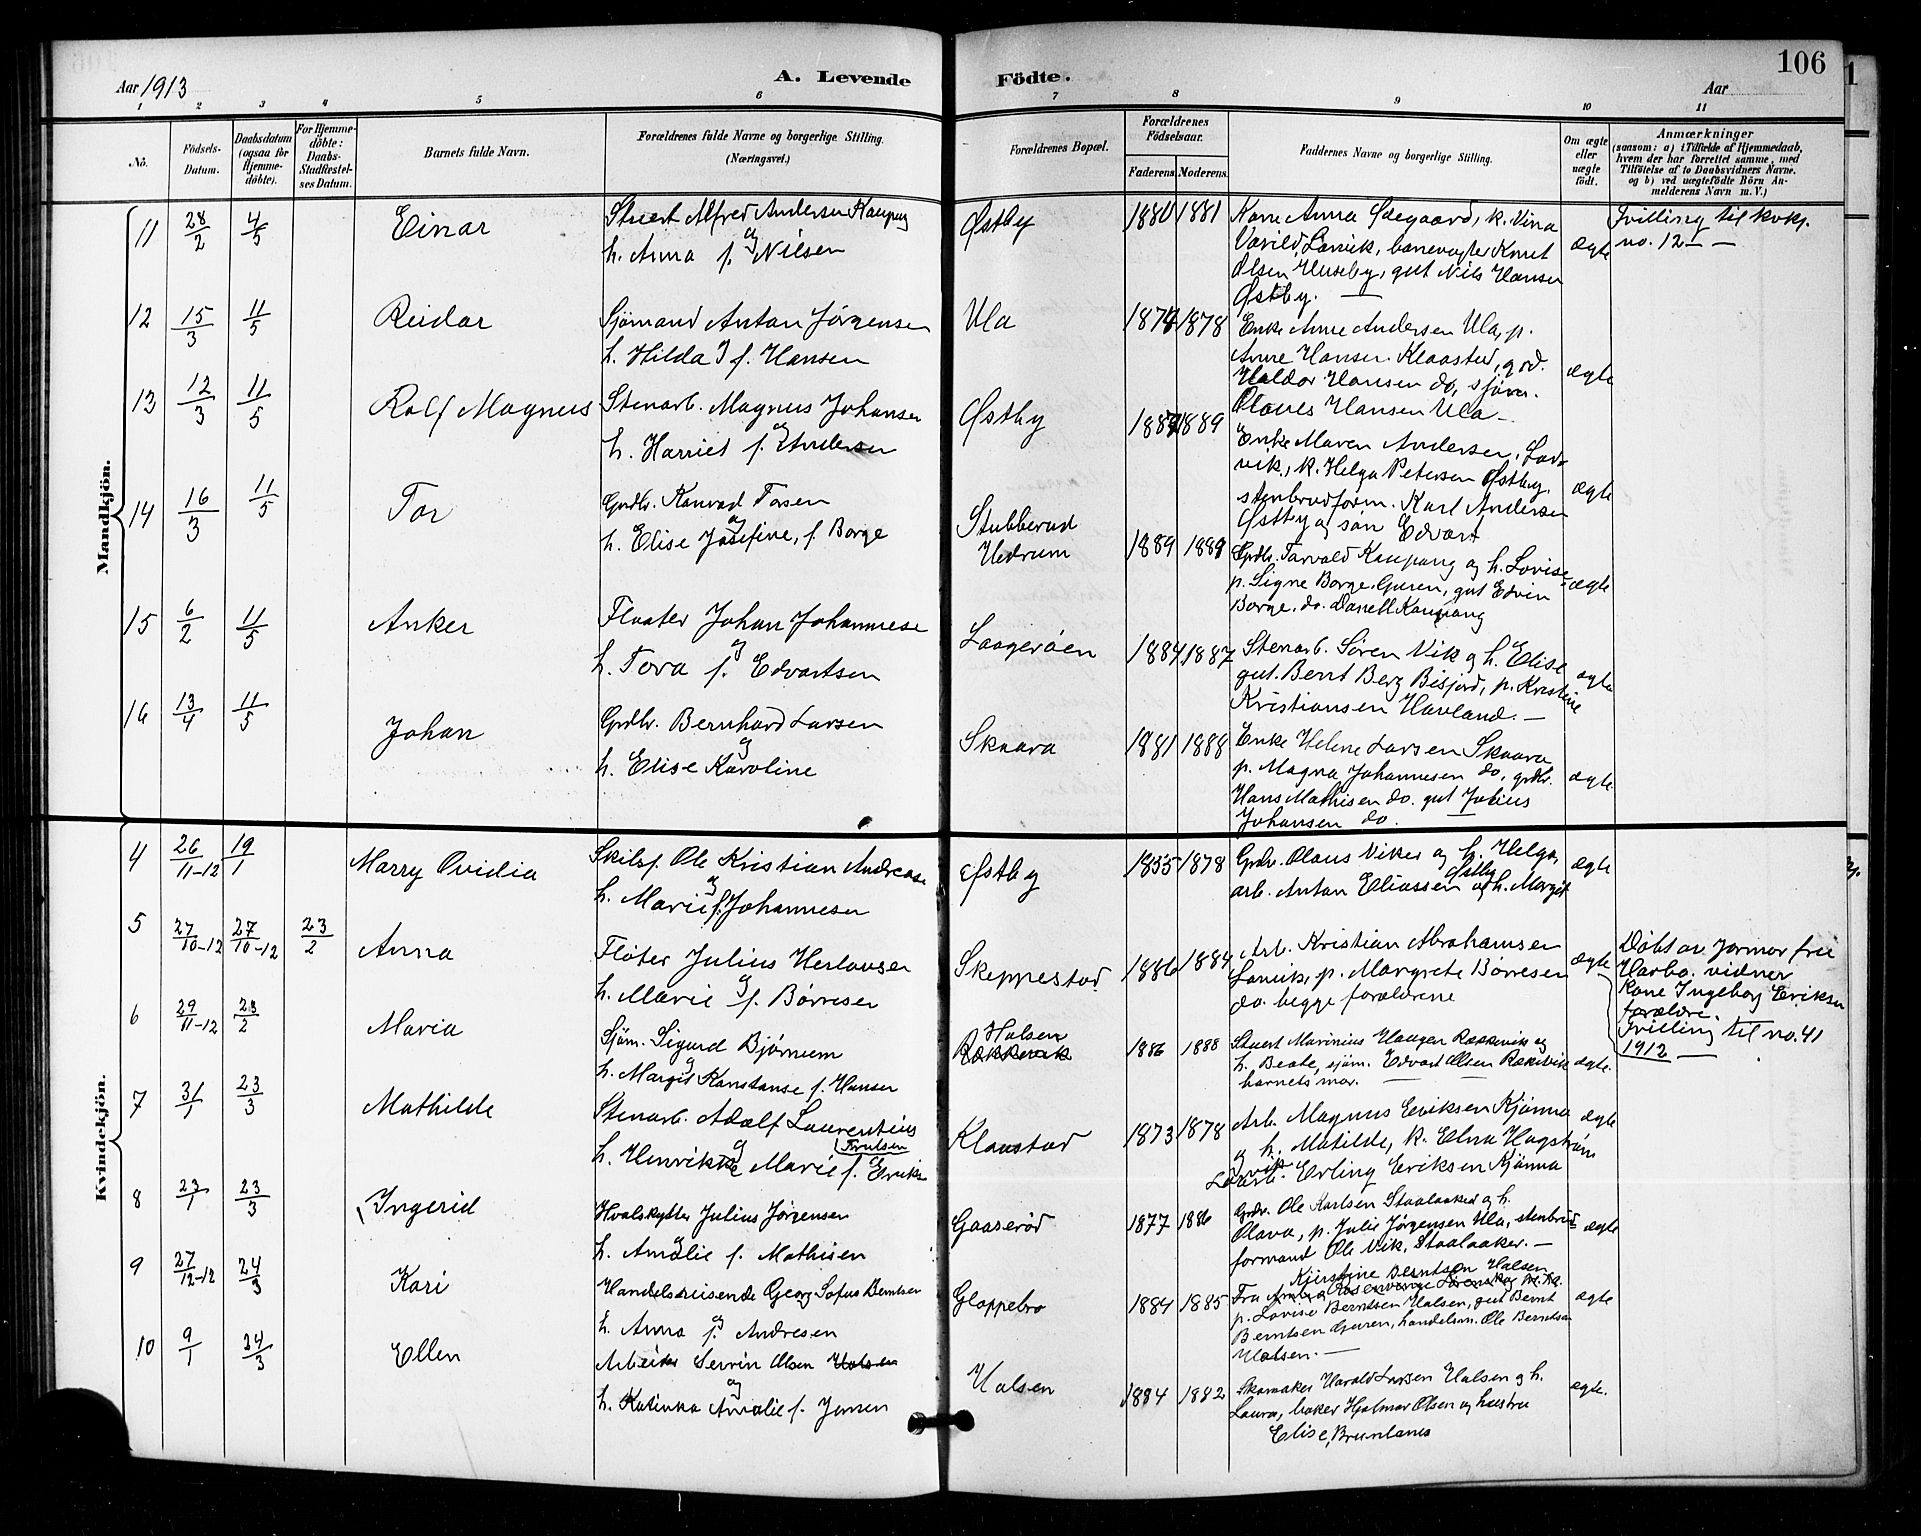 Aar 1913
A. Levende
Födte.
Aar
106
1 2 3 4 5 6 7 8 9 10 11
No.
Födsels-Datum.
Daabsdatum (ogsaa for Hjemme-döbte).
For Hjemme-döbte: Daabs-Stadfestel-ses Datum.
Barnets fulde Navn.
Forældrenes fulde Navne og borgerlige Stilling. (Næringsvei.)
Forældrenes Bopæl.
Forældrenes Födselsaar.
Faderens Moderens.
Faddernes Navne og borgerlige Stilling.
Om ægte eller uægte födt.
Anmærkninger
(saasom: a) i Tilfælde af Hjemmedaab, hvem der har forrettet samme, med Tilföielse af to Daabsvidners Navne, og b) ved uægtefödte Börn An-melderens Navn m. V.)
Mandkjön.
11 28/2 4/5 Einar
Stuert Alfred Andersen Kaupang
og
h. Anna f. Nilsen
Østby 1880 1881
Kone Anna Ødegaard, k. Vina
Varild, Larvik, banevogter Knut
Olsen Huseby, gut Nils Hansen
Østby. —
ægte
Tvilling til kvkj.
no. 12 — —
12 15/3 11/5 Reidar
Sjømand Anton Jørgensen
h. Hilda J f. Hansen
Ula 1874 1878
Enke Anne Andersen Ula, p.
Anne Hansen Klaastad, grd.
Haldor Hansen do, sjøm.
Olaves Hansen Ula —
ægte
13 12/3 11/5 Rolf Magnus
Stenarb. Magnus Johansen
og
h. Harriet f. Andersen
Østby 1889
Enke Maren Andersen, Lar-
vik, k. Helga Petersen Østby,
stenbrudform. Karl Andersen
Østby og søn Edvart
ægte
14 16/3 11/5 Tor
Grdbr. Konrad Torsen
og
h. Elise Josefine, f. Borge
Stubberud
Hedrum
1889
Grdbr. Torvald Kaupang og h. Lovise,
p. Signe Borge, Guren, gut Edvin
Borge, do. Daniell Kaupang
ægte
15 6/2 11/5 Anker
Fløater Johan Johannesen
og
h. Tova f. Edvartsen
Laagerøen 1884 1887
Stenarb. Søren Vik og h. Elise
gut. Bernt Berg Bisjord, p. Kristine
Kristiansen Havland. —
ægte
16 13/4 11/5 Johan
Grdbr. Bernhard Larsen
og
h. Elise Karoline
Skaara 1881 1888
Enke Helene Larsen Skaara
p. Magna Johannesen do, grdbr.
Hans Mathisen do. gut Julius
Johansen do.
ægte.
Kvindekjön.
4 26/11-12 19/1 Marry Ovidia
Skilsf. Ole Kristian Andreasen
og
h. Marie f. Johannesen
Østby 1855 1878
Grdbr. Olaus Viker og h. Helga,
Østby
arb. Anton Eliassen og h. Margit
ægte
5 27/10-12 27/10-12 23/2 Anna
Fløter Julius Herlovsen
og
h. Marie f. Børresen
Skeppestad 1886 1884
Arb. Kristian Abrahamsen
Larvik, p. Margrete Børresen
do. begge forældrene
ægte
Døbt av jormor fru
Harbo. vidner
Kone Ingeborg Eriksen
forældre.
Tvilling til no. 41
1912 —
6 29/11-12 23/2 Maria
Sjøm. Sigurd Bjørnum
og
h. Margit Konstanse f. Hansen
Halsen
Rækkevik
1886 1888
Stuert Marinius Haugen Rækkevik og
h. Beate, sjøm. Edvart Olsen Rækkevik
barnets mor. —
ægte.
7 31/1 23/3 Mathilde
Stenarb. Adolf Laurentius
Trulsen
og
h. Henrikke Marie f. Eriksen
Klaastad 1873 1878
Arb. Magnus Eriksen Kjønna
og h. Matilde, k. Elna Hagstrøm
Larvik. Erling Eriksen Kjønna
ægte
8 23/1 23/3 Ingerid
Hvalskytter Julius Jørgensen
og
h. Amalie f. Mathisen
Gaaserød 1877 1886
Grdbr. Ole Karlsen Staalaaker og h.
Olava, p. Julie Jørgensen Ula, stenbrud
formand Ole Vik, Staalaaker. —
ægte
9 27/12-12 24/3 Kari
Handelsreisende Georg Sofus Berntsen
og
h. Anna f. Andresen
Gloppebro 1884 1885
Kjerstine Berntsen Halsen
Fru
p. Lovise Berntsen Halsen, gut Bernt
Berntsen Guren, handelsm. Ole Berntsen
Halsen. —
ægte
10 9/1 24/3 Ellen
Arbeider Servin Olsen Halsen
og
h. Katinka Amalie f. Jensen
Halsen 1884 1882
Skomaker Harald Larsen Halsen og h.
Laura, baker Hjalmar Olsen og hustru
Elise, Brunlanes
ægte.